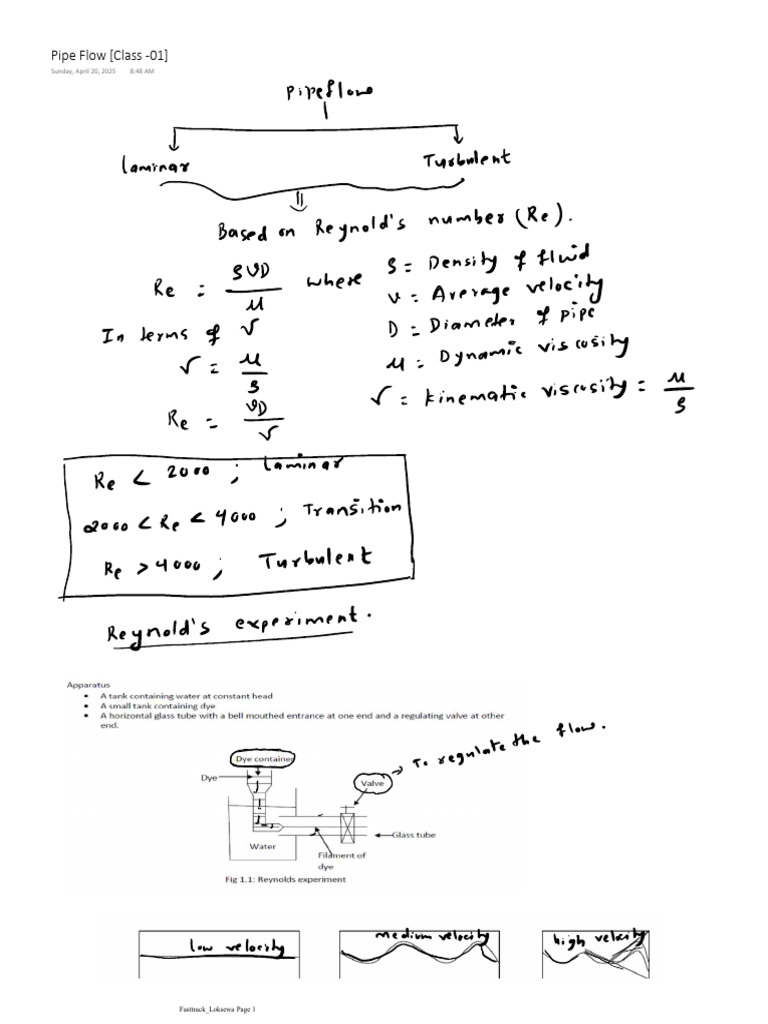 Pipe Flow [Class -01]
Sunday, April 20, 2025 8:48 AM
Pipeflow
Laminar Turbulent
Based on Reynold's number (Re).
Re = ρVD/μ where ρ = Density of fluid
v = Average velocity
In terms of ν D = Diameter of pipe
ν = μ/ρ μ = Dynamic viscosity
Re = VD/ν ν = kinematic viscosity = μ/ρ
Re < 2000 ; Laminar
2000 < Re < 4000 ; Transition
Re > 4000 ; Turbulent
Reynold's experiment.
Apparatus
• A tank containing water at constant head
• A small tank containing dye
• A horizontal glass tube with a bell mouthed entrance at one end and a regulating valve at other
end.
To regulate the flow.
Dye container
Dye
Valve
Glass tube
Water
Filament of
dye
Fig 1.1: Reynolds experiment
low velocity medium velocity high velocity
Fasttrack_Loksewa Page 1